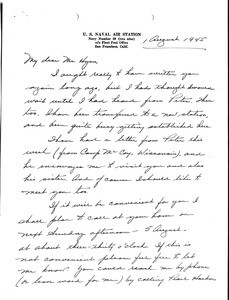 U. S. NAVAL AIR STATION
Navy Number 29 (two nine)
c/o Fleet Post Office
San Francisco, Calif.
1 August 1945
My dear Mr
I ought really to have written you
again long ago, but I had thought I would
wait until I had heard from Peter. Then
too, I have been transferred to a new station,
and been quite busy getting established here.
I have had a letter from Peter this
week (from Camp McCoy, Wisconsin) and
he encourages me to visit you and also
his sister. And of course I should like to
meet you too.
If it will be convenient for you I
shall plan to call at your home on
next Sunday afternoon - 5 August -
at about three-thirty o'clock. If this is
not convenient please feel free to let
me know. You could reach me by phone
(or leave word for me) by calling Pearl Harbor